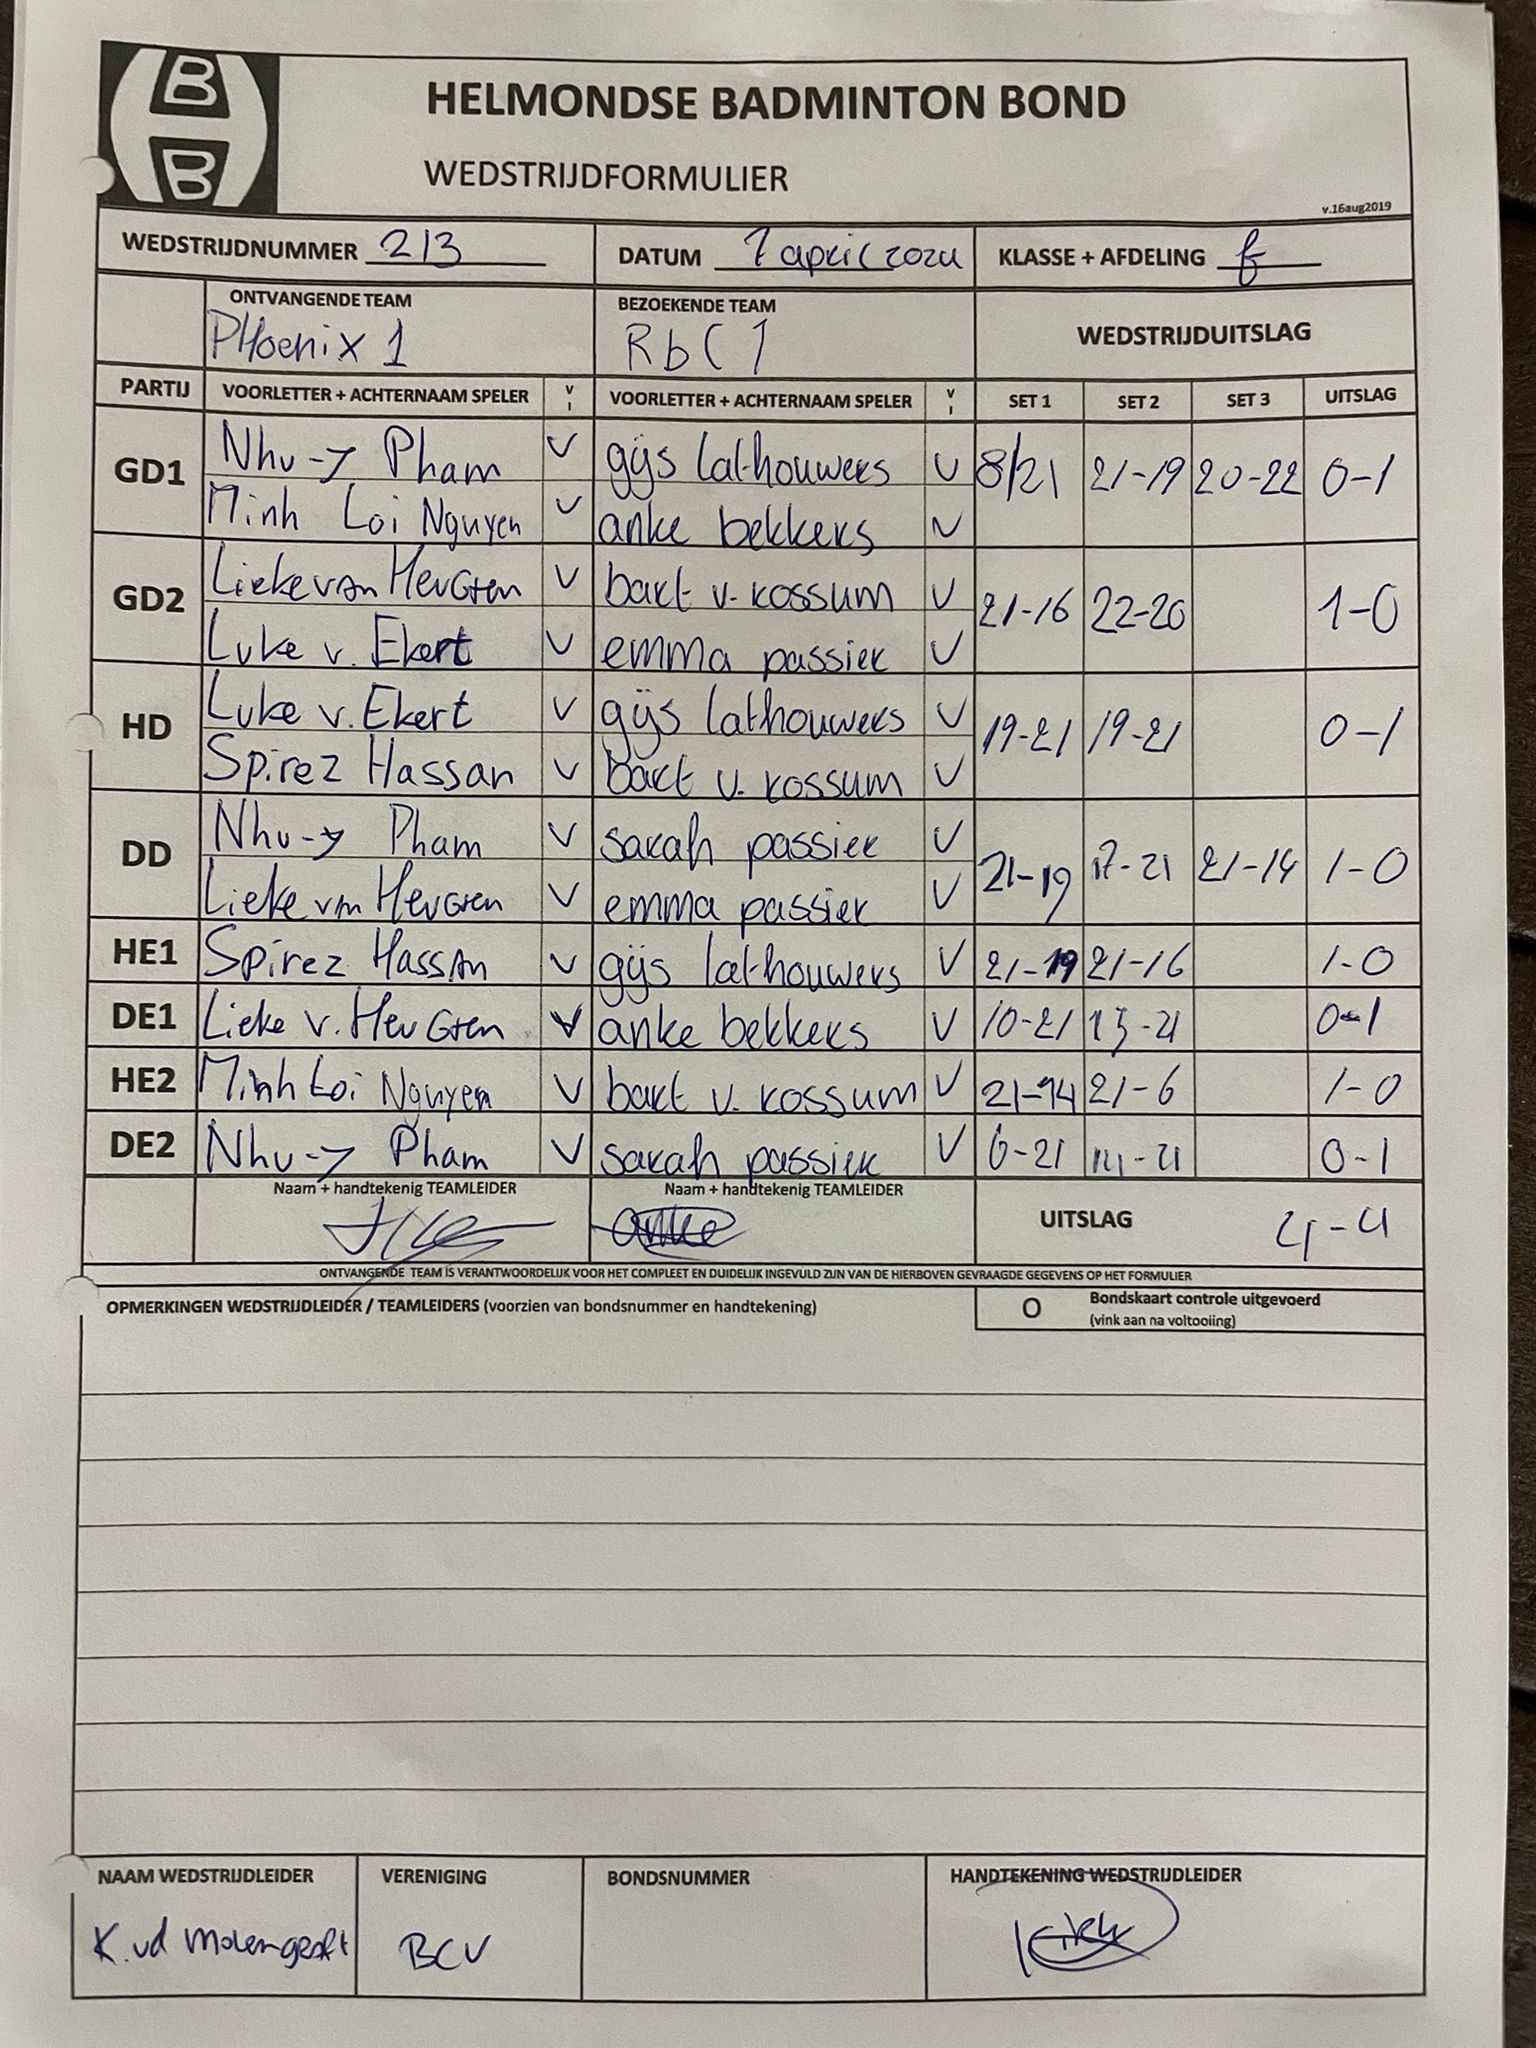 B
B
HELMONDSE BADMINTON BOND
WEDSTRIJDFORMULIER
v.16aug2019
WEDSTRIJDNUMMER 213 DATUM 7 april 2024 KLASSE + AFDELING f
ONTVANGENDE TEAM BEZOEKENDE TEAM WEDSTRIJDUITSLAG
PHoenix 1 RbC 1
PARTIJ VOORLETTER + ACHTERNAAM SPELER V I VOORLETTER + ACHTERNAAM SPELER V I SET 1 SET 2 SET 3 UITSLAG
GD1 Nhu-y Pham V gijs lathouwers V 8/21 21-19 20-22 0-1
Minh Loi Nguyen V anke bekkers V
GD2 Lieke van Heugten V bart v. rossum V 21-16 22-20 1-0
Luke v. Ekert V emma passier V
HD Luke v. Ekert V gijs lathouwers V 19-21 19-21 0-1
Spirez Hassan V bart v. rossum V
DD Nhu-y Pham V sarah passier V 21-19 17-21 21-14 1-0
Lieke van Heugten V emma passier V
HE1 Spirez Hassan V gijs lathouwers V 21-19 21-16 1-0
DE1 Lieke v. Heugten V anke bekkers V 10-21 15-21 0-1
HE2 Minh Loi Nguyen V bart v. rossum V 21-14 21-6 1-0
DE2 Nhu-y Pham V sarah passier V 6-21 14-21 0-1
Naam + handtekenig TEAMLEIDER Naam + handtekenig TEAMLEIDER UITSLAG 4-4
anke
ONTVANGENDE TEAM IS VERANTWOORDELIJK VOOR HET COMPLEET EN DUIDELIJK INGEVULD ZIJN VAN DE HIERBOVEN GEVRAAGDE GEGEVENS OP HET FORMULIER
OPMERKINGEN WEDSTRIJDLEIDER / TEAMLEIDERS (voorzien van bondsnummer en handtekening) O Bondskaart controle uitgevoerd
(vink aan na voltooiing)
NAAM WEDSTRIJDLEIDER VERENIGING BONDSNUMMER HANDTEKENING WEDSTRIJDLEIDER
K. vd Molengraft BCV